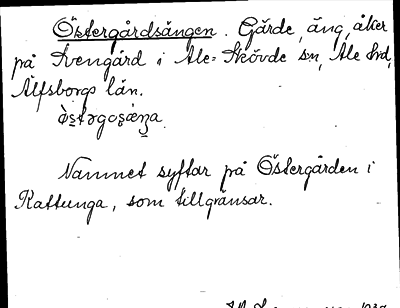 Östergårdsängen. Gärde, äng, åker
på Svengård i Ale-Skövde sn, Ale hrd,
Älfsborgs län.
Namnet syftar på Östergården i
Kattunga, som tillgränsar.